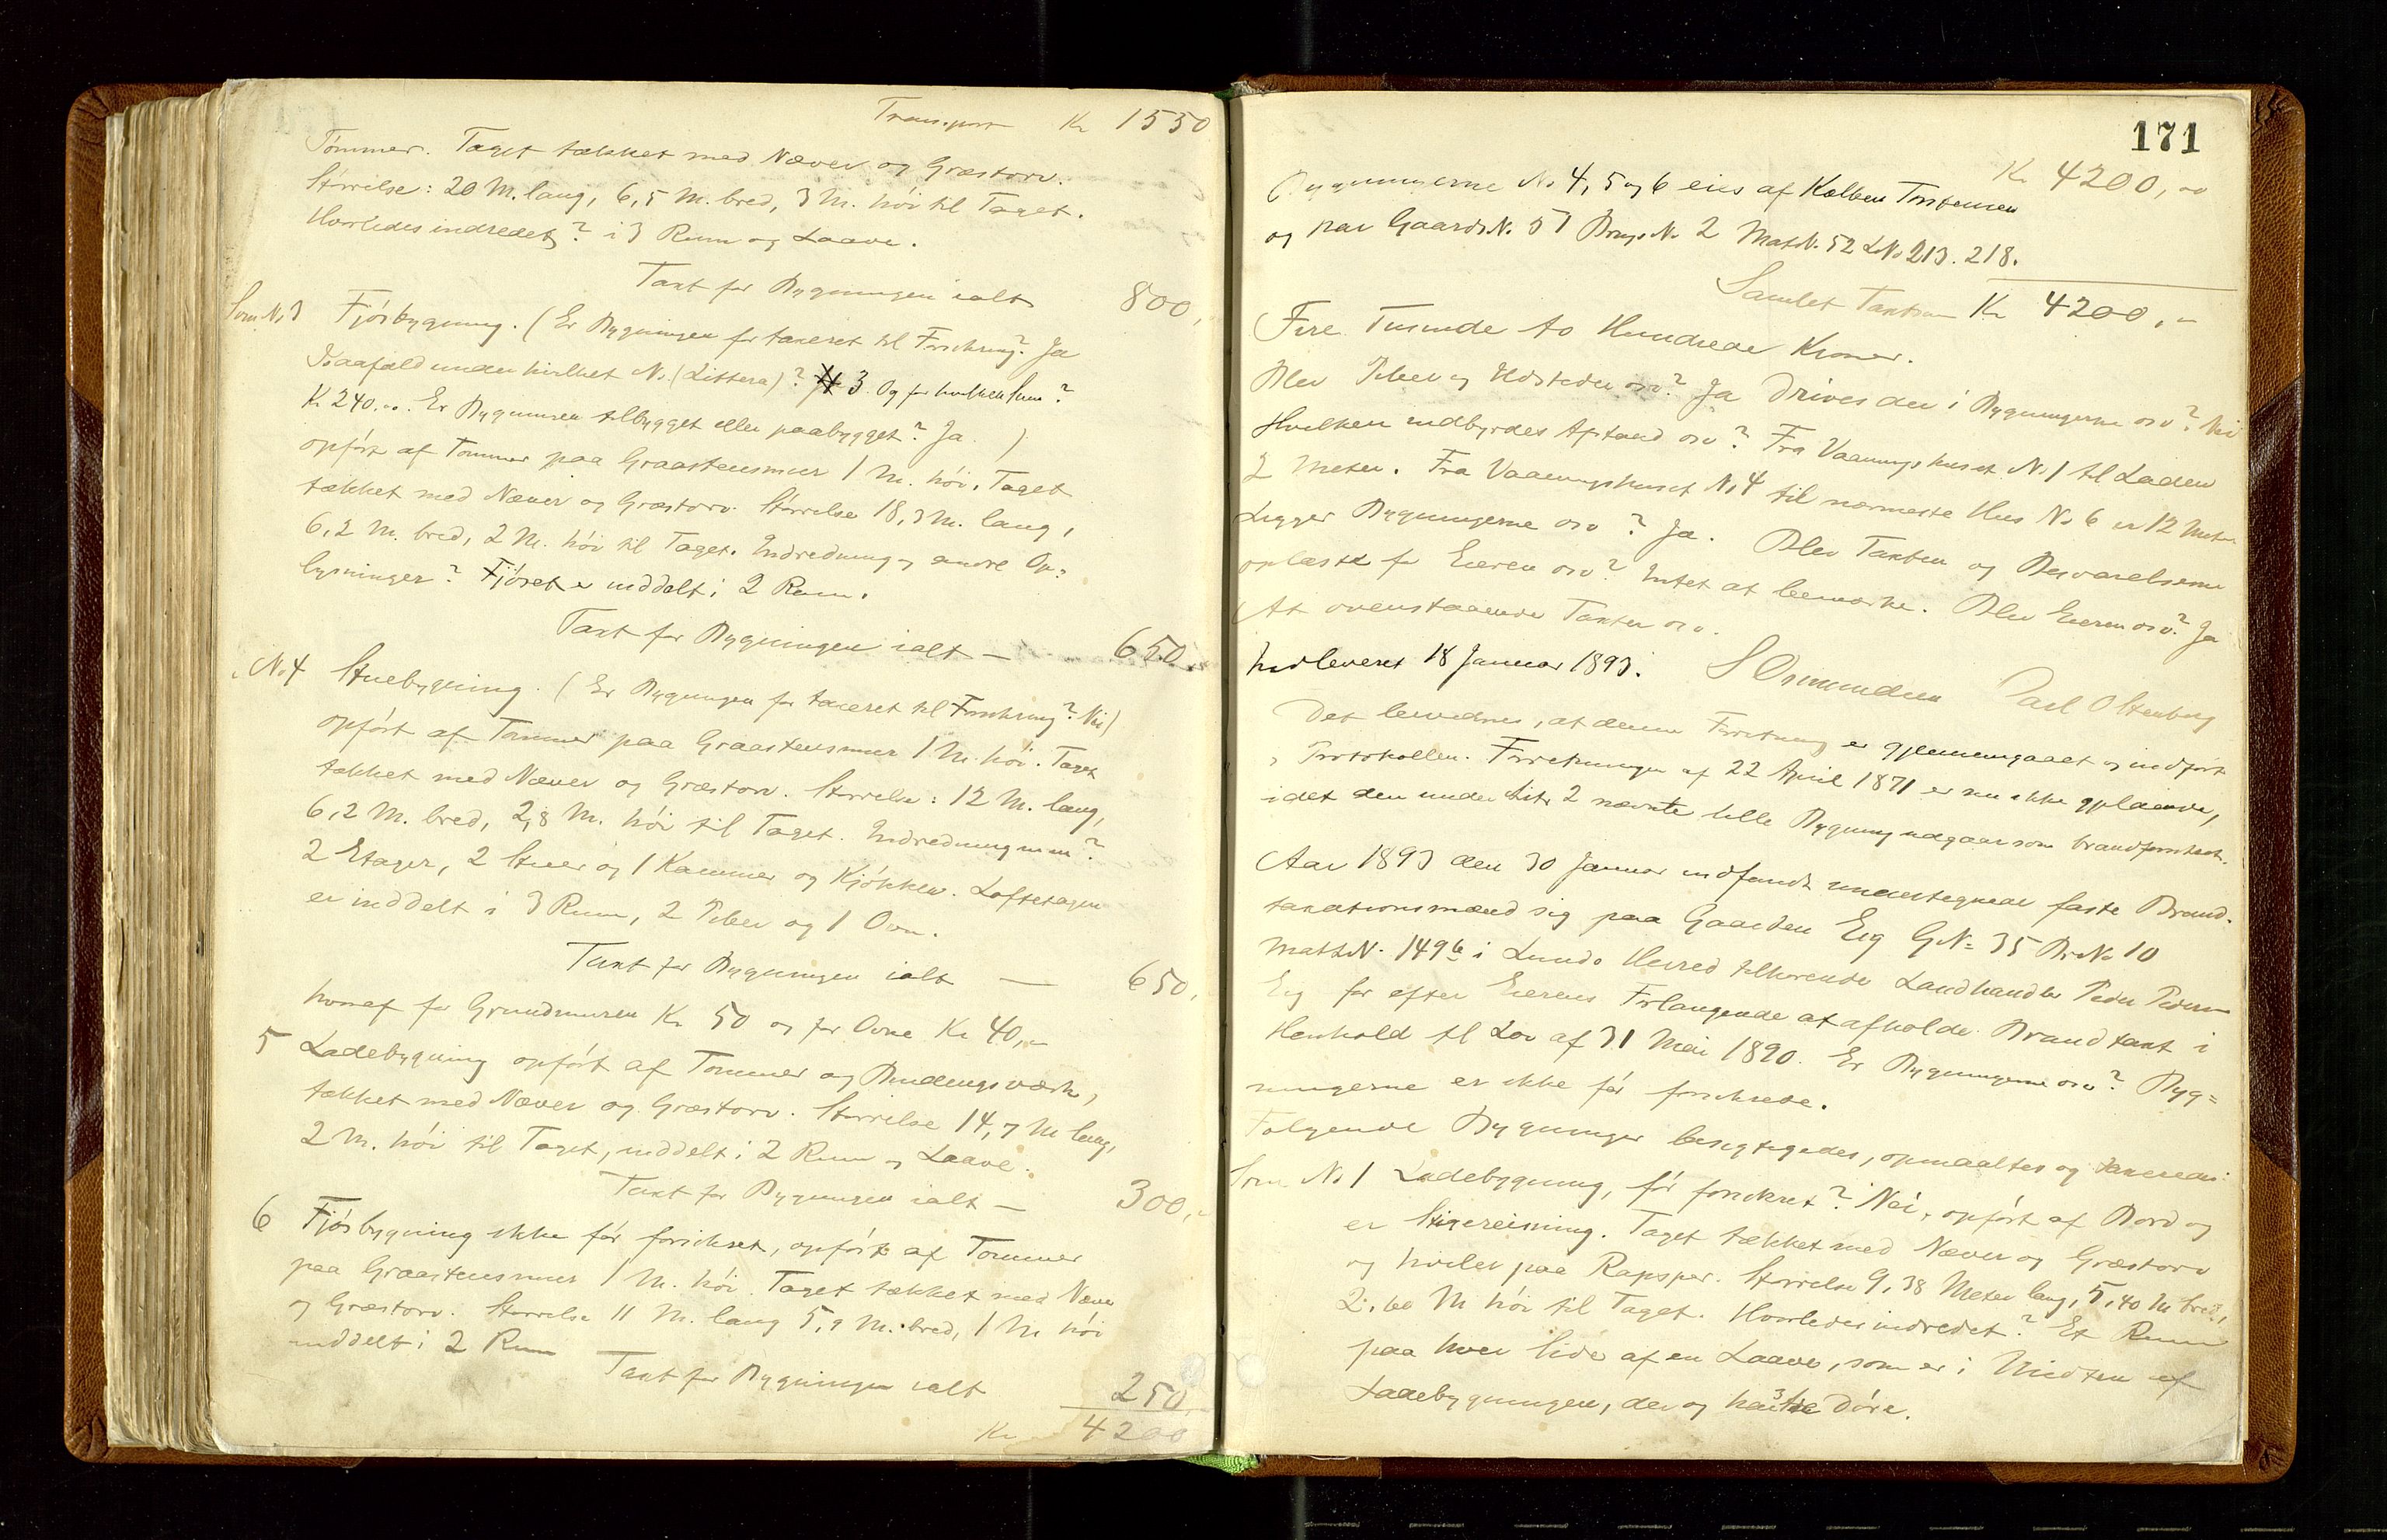 Transport Kr 1550
Tömmer. Taget tækket med Næver og Græstorv.
Störrelse: 20 M. lang, 6,5 M. bred, 3 M. höi til Taget.
Hvorledes indredet? i 3 Rum og Laave.
Taxt for Bygningen ialt 800,
Som No 3 Fjösbygning. (Er Bygningen før taxeret til Forsikring? Ja
Isaafald under hvilket No. (Littera)? 3. Og for hvilken Sum?
Kr 240.00. Er Bygningen tilbygget eller paabygget? Ja. )
opfört af Tömmer paa Graastensmur 1 M. höi. Taget
tækket med Næver og Græstorv. Störrelse 18,3 M. lang,
6,2 M. bred, 2 M. höi til Taget. Indredning og andre Op-
lysninger? Fjöset er inddelt i 2 Rum.
Taxt for Bygningen ialt — 650.
No 4 Stuebygning. (Er Bygningen før taxeret til Forsikring? Nei)
opfört af Tømmer paa Graastensmur 1 M. höi. Taget
tækket med Næver og Græstorv. Störrelse: 12 M. lang,
6,2 M. bred, 2,8 M. höi til Taget. Indredning m m?
2 Etager, 2 Stuer og 1 Kammer og Kjökken. Loftsetagen
er inddelt i 3 Rum, 2 Piber og 1 Ovn.
Taxt for Bygningen ialt — 650,
hvoraf for Grundmuren Kr 50 og for Ovne Kr 40,-
5 Ladebygning opfört af Tömmer og Bindingsværk,
tækket med Næver og Græstorv. Störrelse 14,7 M lang,
2 M. höi til Taget, inddelt i 2 Rum og Laave.
Taxt for Bygningen ialt — 300,-
6 Fjösbygning ikke för forsikret, opfört af Tömmer
paa Graastensmur 1 M. höi. Taget tækket med Næver
og Græstorv. Störrelse 11 M. lang 5,9 M. bred, 1 M höi
inddelt i 2 Rum
Taxt for Bygningen ialt 250,
Kr 4200
171
Kr 4200,00
Bygningerne No 4, 5 og 6 eies af Kolben Torstensen
og har Gaards No. 57 Brugs No 2 Mat. No. 52 L No 213. 218.
Samlet Taxtsum Kr 4200,-
Fire Tusinde to Hundrede Kroner.
Blev Piber og Ildsteder osv? Ja Drives der i Bygningerne osv? Nei
Hvilken indbyrdes Afstand osv? Fra Vaaningshuset No 1 til Laden
2 Meter. Fra Vaaningshuset No 4 til nærmeste Hus No 6 er 12 Meter
Ligger Bygningerne osv? Ja. Blev Taxten og Besvarelserne
oplæste for Eieren osv? Intet at bemærke. Blev Eieren osv? Ja
At ovenstaaende Taxter osv.
Indleveret 18 Januar 1893. S Osmundsen Carl O Stenberg
Det bevidnes, at denne Forretning er gjennemgaaet og indfört
i Protokollen. Forretningen af 22 April 1871 er nu ikke gjeldende,
idet den under Litr 2 nævnte lille Bygning udgaar som brandforsikret.
Aar 1893 den 30 Januar indfandt undertegnede faste Brand-
taxationsmænd sig paa Gaarden Eig G No 35 Br No 10
Mat No. 149 b i Lunde Herred tilhørende Landhandler Peder Pedersen
Eig for efter Eierens Forlangende at afholde Brandtaxt i
Henhold til Lov af 31 Mai 1890. Er Bygningerne osv? Byg-
ningerne er ikke för forsikrede.
Følgende Bygninger besigtigedes, opmaaltes og taxeredes:
Som No 1 Ladebygning, för forsikret? Nei, opfört af Bord og
er Stigereisning. Taget tækket med Næver og Græstorv
og hviler paa Rapsper. Störrelse 9,38 Meter lang, 5,40 M bred,
2,60 M höi til Taget. Hvorledes indredet? Et Rum
paa hver Side af en Laave, som er i Midten af
Ladebygningen, der og har 3 Døre.